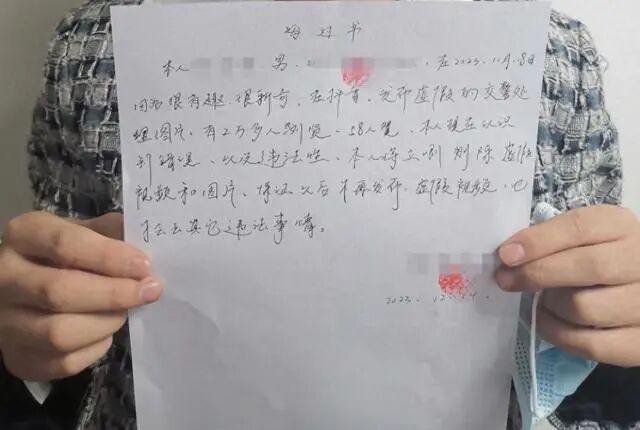 悔过书
本人 男, 在2023.11月18日
因为很有趣、很新奇、在抖音、发布虚假的交警处
理图片, 有2万多人浏览、58人赞、本人现在认识
到错误、以及违法性、本人将立刻删除虚假
视频和图片、保证以后不再发布、虚假视频, 也
不会去其它违法事情。
2023. 12